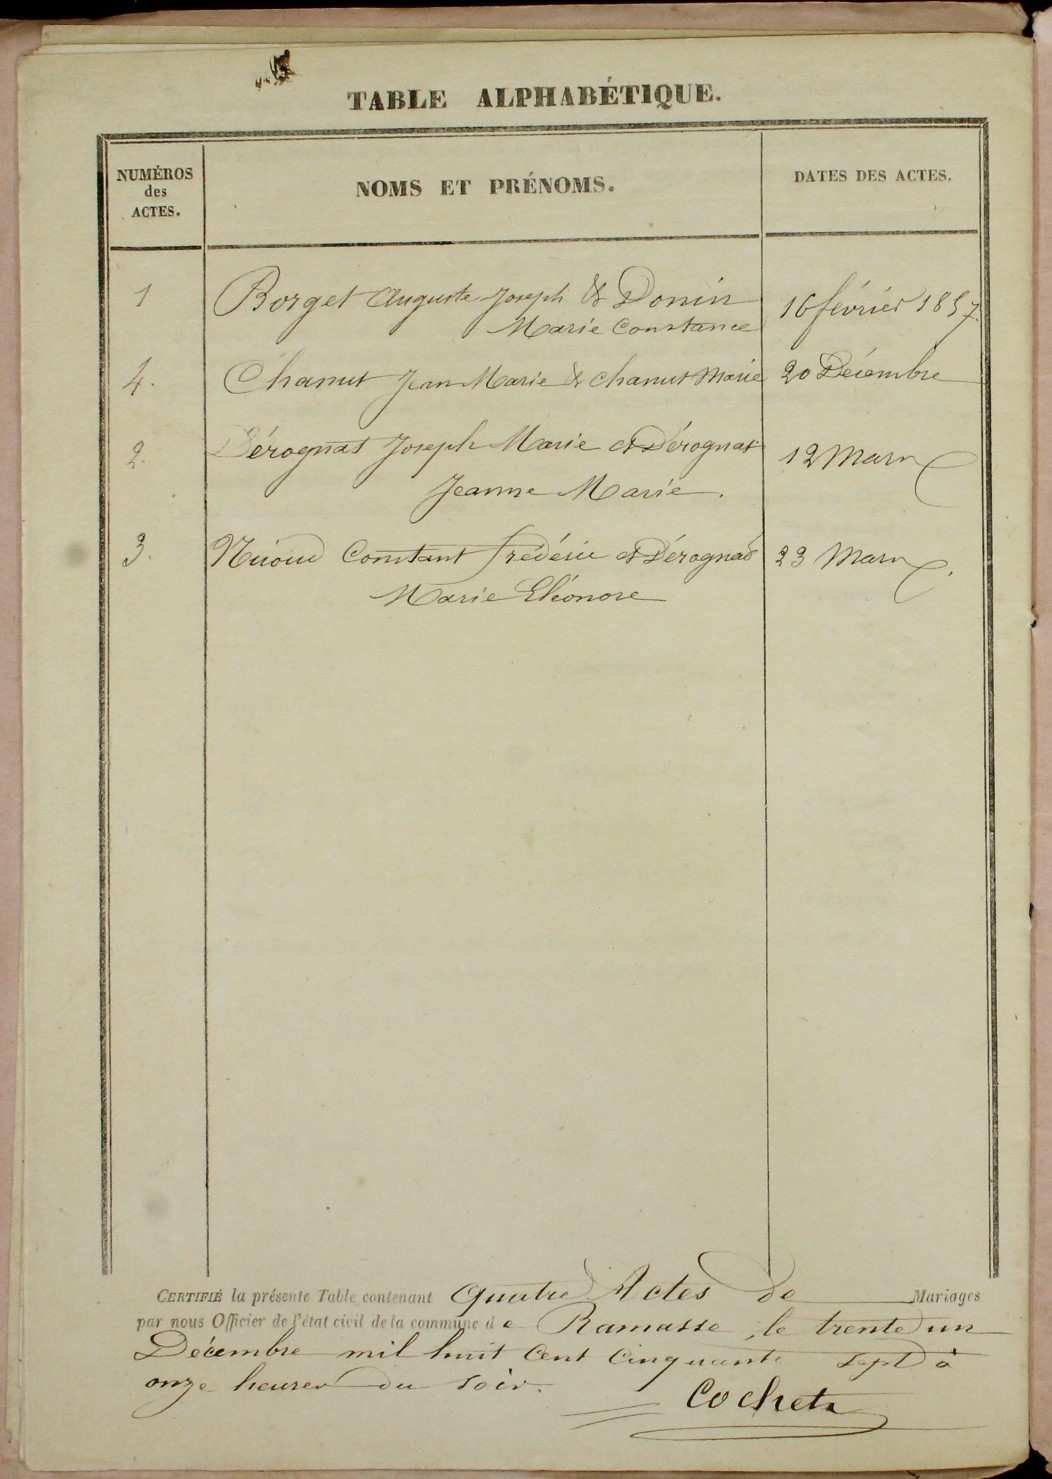 TABLE ALPHABÉTIQUE.
NUMÉROS
des
ACTES.
NOMS ET PRÉNOMS.
DATES DES ACTES.
1 Borget Auguste Joseph & Donin 16 février 1857.
Marie Constance
4. Chanut Jean Marie & Chanut Marie 20 Décembre
2. Dérognat Joseph Marie et Dérognat 12 Mars
Jeanne Marie.
3. Nioud Constant frédéric et Dérognat 23 Mars.
Marie Eléonore
CERTIFIÉ la présente Table contenant quatre Actes de Mariages
par nous Officier de l'état civil de la commune de Ramasse, le trente un
Décembre mil huit Cent Cinquante sept à
onze heures du soir.
Cochet